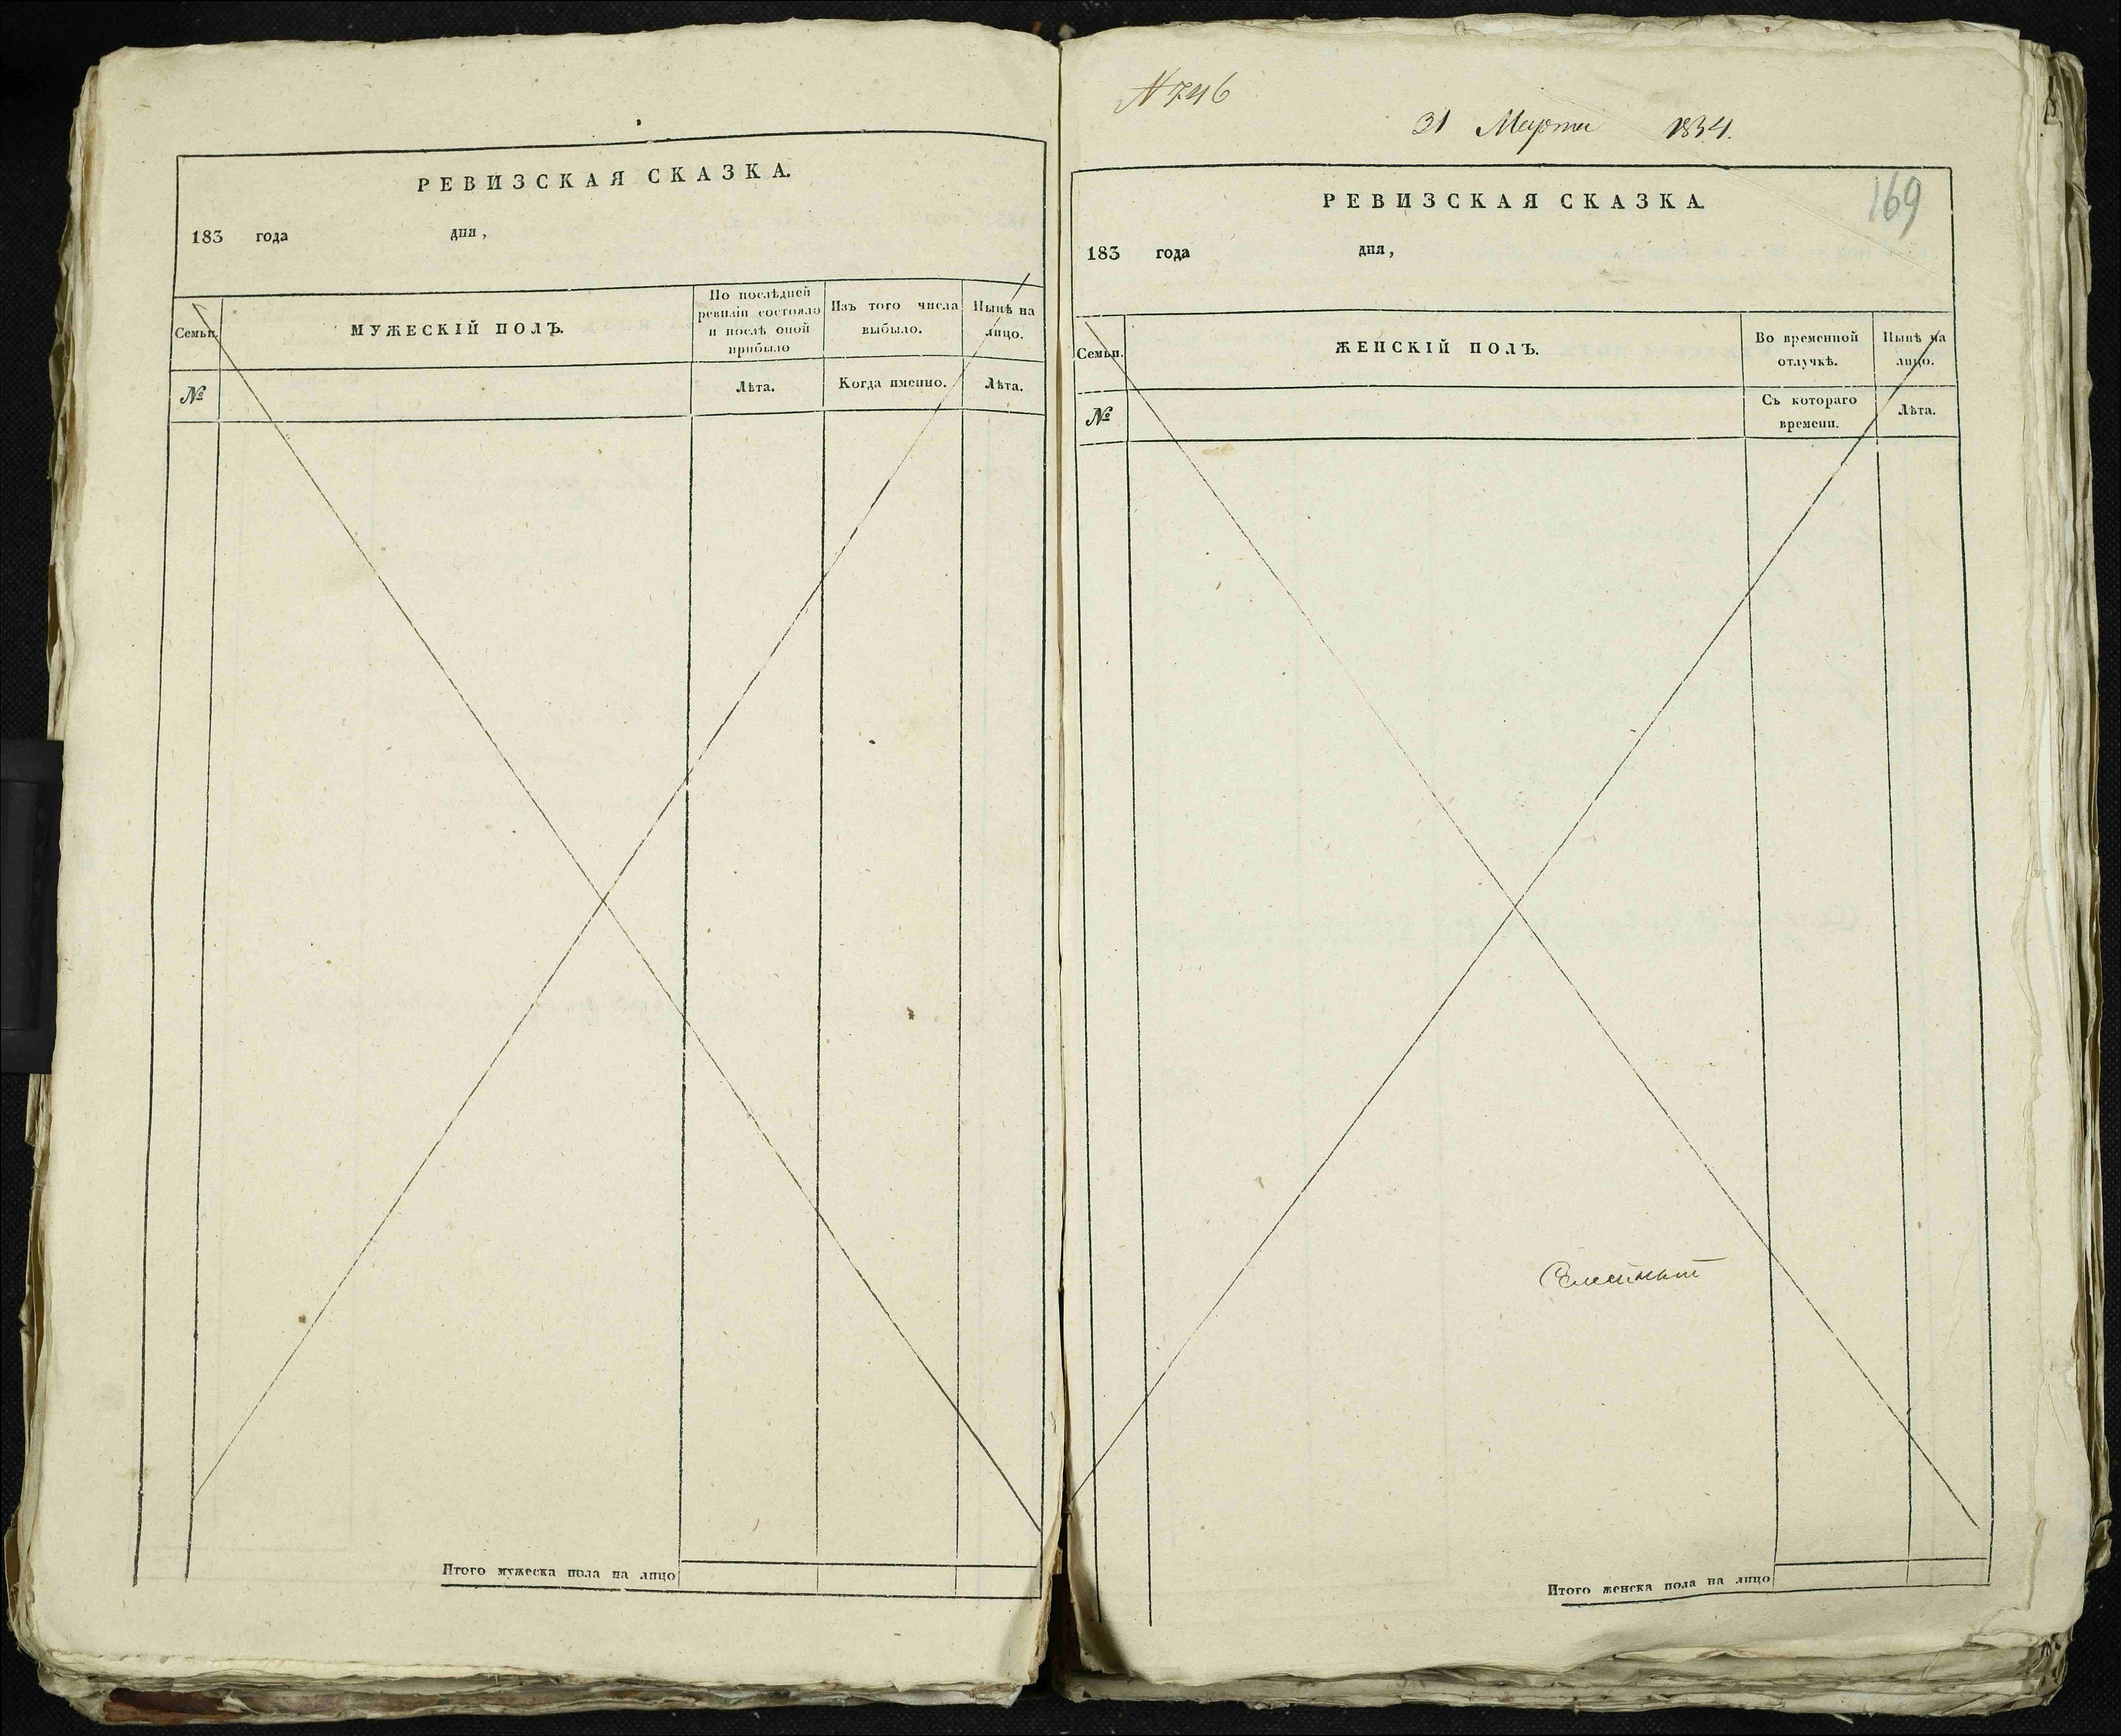 РЕВИЗСКАЯ СКАЗКА.
183 года дня,
Семьи.
МУЖЕСКІЙ ПОЛЪ.
По послѣдней ревизіи состояло и послѣ оной прибыло
Изъ того числа выбыло.
Нынѣ на лицо.
№
Лѣта.
Когда именно.
Лѣта.
Итого мужеска пола на лицо
N 746
31 Марта 1834.
169
РЕВИЗСКАЯ СКАЗКА.
183 года дня,
Семьи.
ЖЕНСКІЙ ПОЛЪ.
Во временной отлучкѣ.
Нынѣ на лицо.
№
Съ котораго времени.
Лѣта.
Итого женска пола на лицо